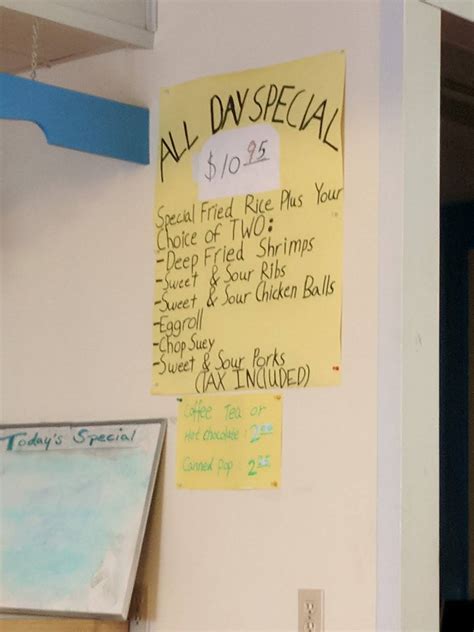 ALL DAY SPECIAL
$10.95
Special Fried Rice Plus Your
Choice of TWO:
-Deep Fried Shrimps
-Sweet & Sour Ribs
-Sweet & Sour Chicken Balls
-Eggroll
-Chop Suey
-Sweet & Sour Porks
(TAX INCLUDED)
Coffee Tea or
Hot chocolate :
Canned pop :
Today's Special